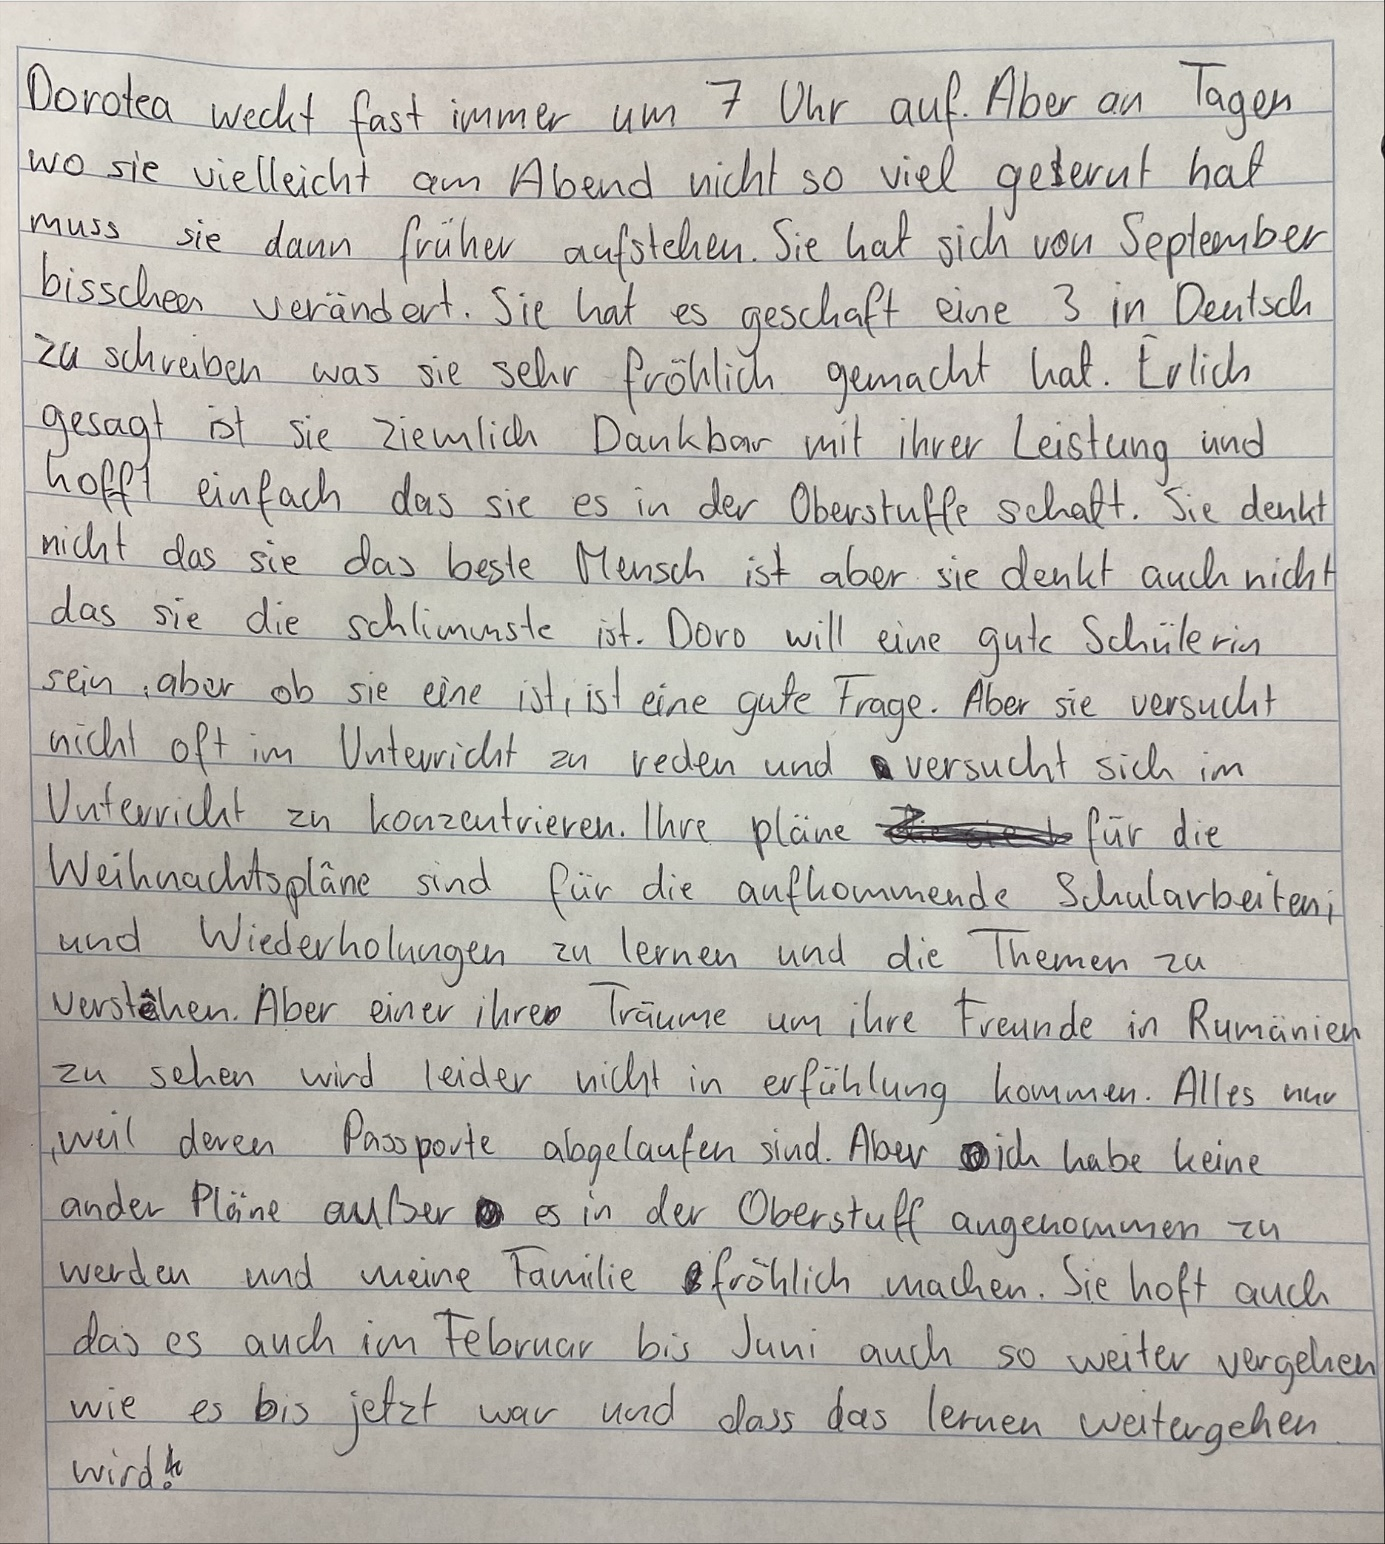 Dorotea weckt fast immer um 7 Uhr auf. Aber an Tagen
wo sie vielleicht am Abend nicht so viel gelernt hat
muss sie dann früher aufstehen. Sie hat sich von September
bisschen verändert. Sie hat es geschaft eine 3 in Deutsch
zu schreiben was sie sehr fröhlich gemacht hat. Erlich
gesagt ist sie ziemlich Dankbar mit ihrer Leistung und
hofft einfach das sie es in der Oberstuffe schaft. Sie denkt
nicht das sie das beste Mensch ist aber sie denkt auch nicht
das sie die schlimmste ist. Doro will eine gute Schülerin
sein, aber ob sie eine ist, ist eine gute Frage. Aber sie versucht
nicht oft im Unterricht zu reden und versucht sich im
Unterricht zu konzentrieren. Ihre pläne für die
Weihnachtspläne sind für die aufkommende Schularbeiten,
und Wiederholungen zu lernen und die Themen zu
verstehen. Aber einer ihre Träume um ihre Freunde in Rumänien
zu sehen wird leider nicht in erfühlung kommen. Alles nur
, weil deren Passporte abgelaufen sind. Aber ich habe keine
ander Pläne außer es in der Oberstuff angenommen zu
werden und meine Familie fröhlich machen. Sie hoft auch
das es auch im Februar bis Juni auch so weiter vergehen
wie es bis jetzt war und dass das lernen weitergehen
wird!